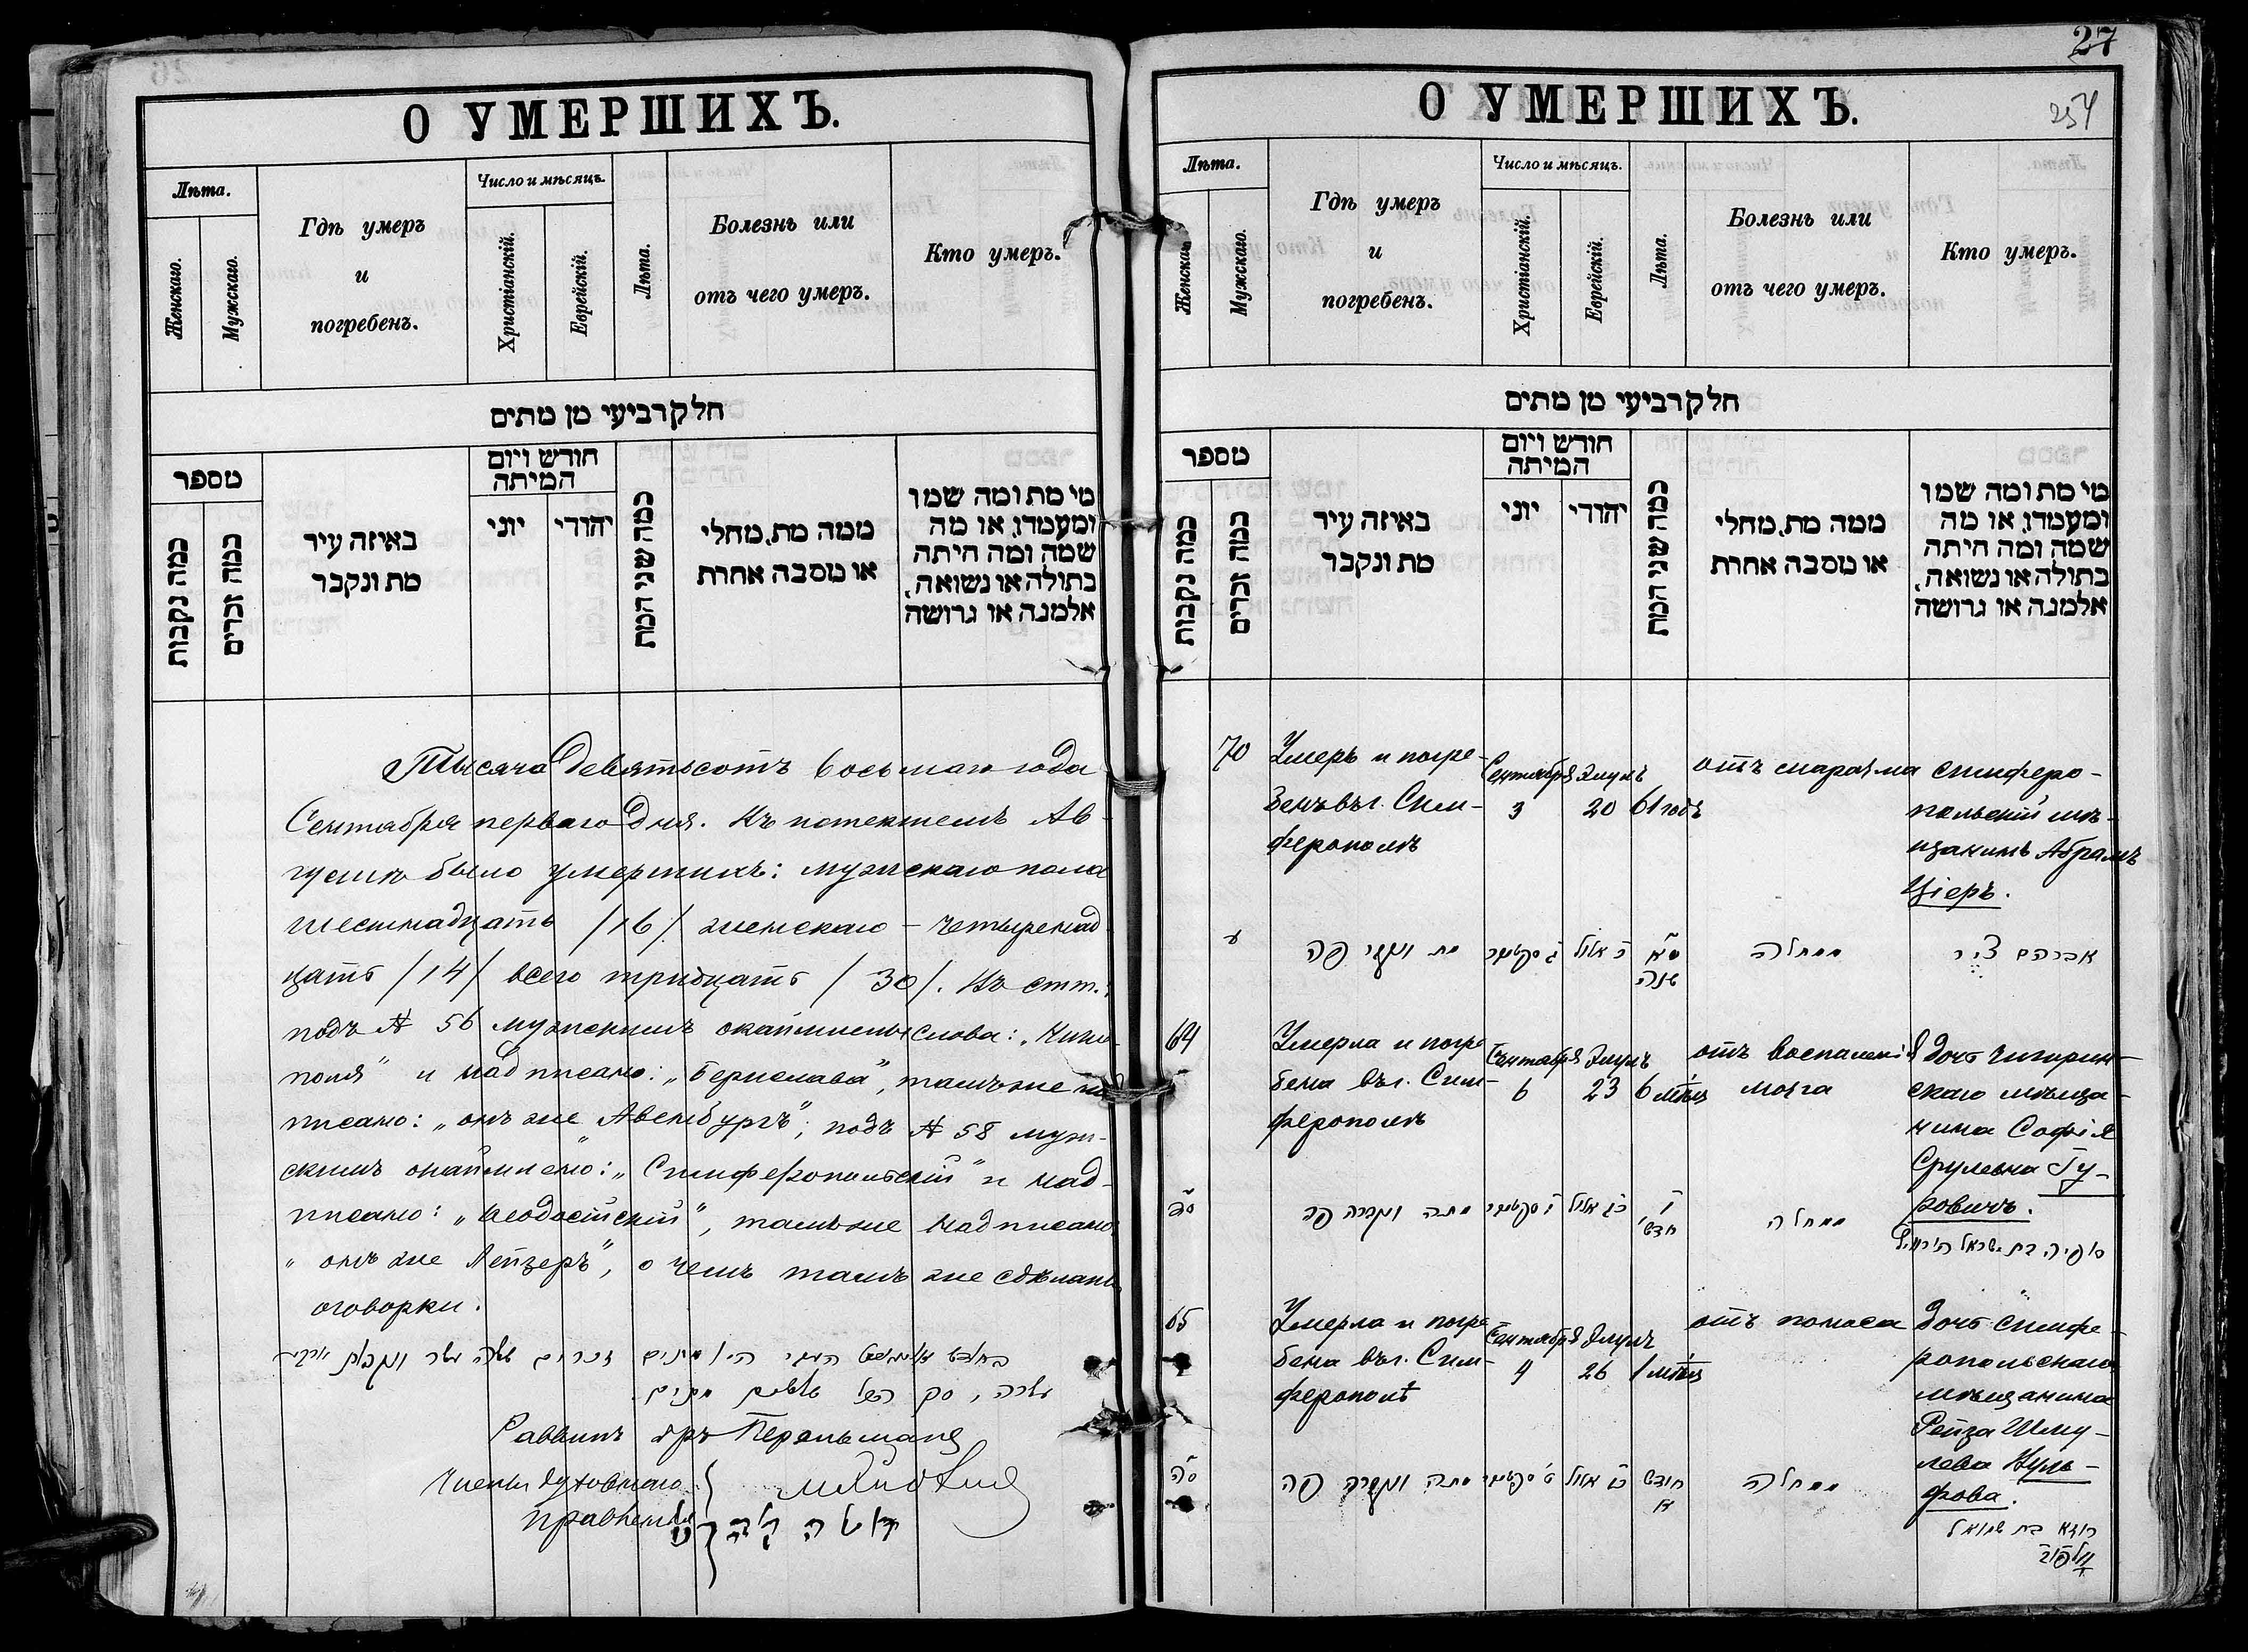 О УМЕРШИХЪ.
Лѣта.
Женскаго.
Мужскаго.
Гдѣ умеръ
и
погребенъ.
Число и мѣсяцъ.
Христіанскій.
Еврейскій.
Лѣта.
Болезнь или
отъ чего умеръ.
Кто умеръ.
חלק רביעי מן מתים
מספר
כמה נקבות
כמה זכרים
באיזה עיר
מת ונקבר
חודש ויום
המיתה
יוני
יהודי
כמה שני המת
ממה מת, מחלי
או מסבה אחרת
מי מת ומה שמו
ומעמדו, או מה
שמה ומה היתה
בתולה או נשואה,
אלמנה או גרושה
Тысяча девятьсотъ восьмаго года
Сентября перваго дня. Въ истекшемъ Ав-
густѣ было умершихъ: мужскаго пола
шестнадцать /16/ женскаго - четырнад
цать /14/ всего тридцать /30/. Въ стт.:
подъ № 56 мужскимъ окаймлены слова:
и надписано: „Берислава", тамъ же на
писано: „онъ же Авенбургъ"; подъ № 58 муж-
скимъ окаймлено: „Симферопольскій" и над-
писано: „Ѳеодосійскій", тамъ же надписано
„онъ же Лейзеръ", о чемъ тамъ же сдѣланы
оговорки.
Раввинъ
Члены духовнаго
правленія
27
О УМЕРШИХЪ.
254
Лѣта.
Женскаго
Мужскаго.
Гдѣ умеръ
и
погребенъ.
Число и мѣсяцъ.
Христіанскій.
Еврейскій.
Лѣта.
Болезнь или
отъ чего умеръ.
Кто умеръ.
חלק רביעי מן מתים
מספר
כמה נקבות
כמה זכרים
באיזה עיר
מת ונקבר
חודש ויום
המיתה
יוני
יהודי
כמה שני המת
ממה מת, מחלי
או מסבה אחרת
מי מת ומה שמו
ומעמדו, או מה
שמה ומה היתה
בתולה או נשואה,
אלמנה או גרושה
70
Умеръ и погре-
бенъ въ г. Сим-
ферополѣ
Сентября
3
Элулъ
20
61 годъ
отъ маразма
симферо-
польскій мѣ-
щанинъ Абрамъ
Ціеръ.
ע
מת ונקבר פה
ג סקטמבר
כ אלול
סא
שנה
ממחלה
אברהם ציר
64
Умерла и погре
бена въ г. Сим-
ферополѣ
Сентября
6
Элулъ
23
6 мѣсяц
отъ воспаленія
мозга
дочь Чигирин-
скаго мѣща-
нина Софія
Срулевна Гу-
ровичъ.
סד
מתה ונקברה פה
ו סקטמבר
כג אלול
ו
חדשי
ממחלה
סופיה בת ישראל
65
Умерла и погре
бена въ г. Сим-
ферополѣ
Сентября
9
Элулъ
26
1 мѣсяц
отъ поноса
дочь симфе-
ропольскаго
мѣщанина
Рейза Шму-
лева Вуль-
фова.
סה
מתה ונקברה פה
ט סקטמבר
כו אלול
חודש
א
ממחלה
רייזא בת שמואל
וולפוב